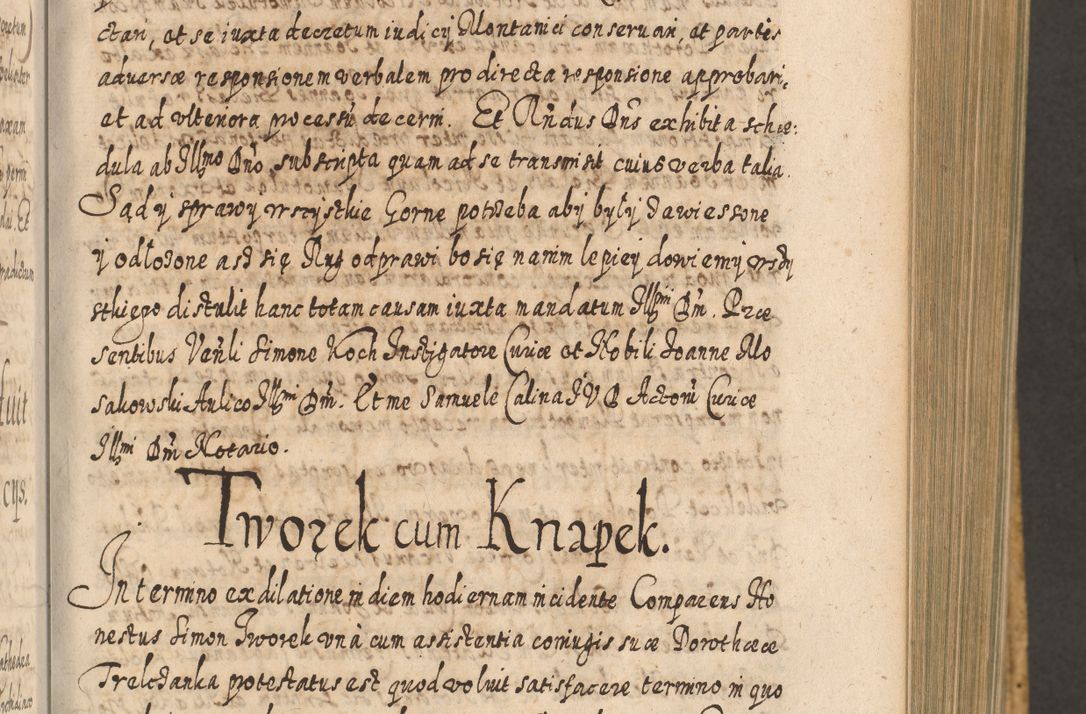 ctari, et se iuxta decretum iudicÿ Montanici conseruari, et partis
aduersæ responsionem verbalem pro directa responsione approbari,
et ad vlteriora processũ decerni. Et R̃ndus Dñs exhibita sche:
dula ab Jllmo Dño, subscripta quam ad se transmisit cuius verba talia.
Sądÿ sprawÿ wszÿstkie Gorne potrzeba abÿ bÿłÿ zawieszone
ÿ odłożone asz się Rug odprawi bo się na nim lepieÿ dowiemÿ wszÿ
stkiego distulit hanc totam causam iuxta mandatum Jllmi Dñi. Præ
sentibus Veñli Simone Koch Jnstigatore Curiæ et Nobili Joanne Mo
sakowski Aulico Jllmi Dñi. Et me Samuele Calina JVD Actorũ Curiæ
Jllmi Dñi Notario.
Tworzek cum Knapek.
Jn termino ex dilatione in diem hodiernam incidente Comparens Ho
nestus Simon Tworek vnà cum assistentia coniugis suæ Dorotheæ
Trelczanka protestatus est quod voluit satisfacere termino in quo